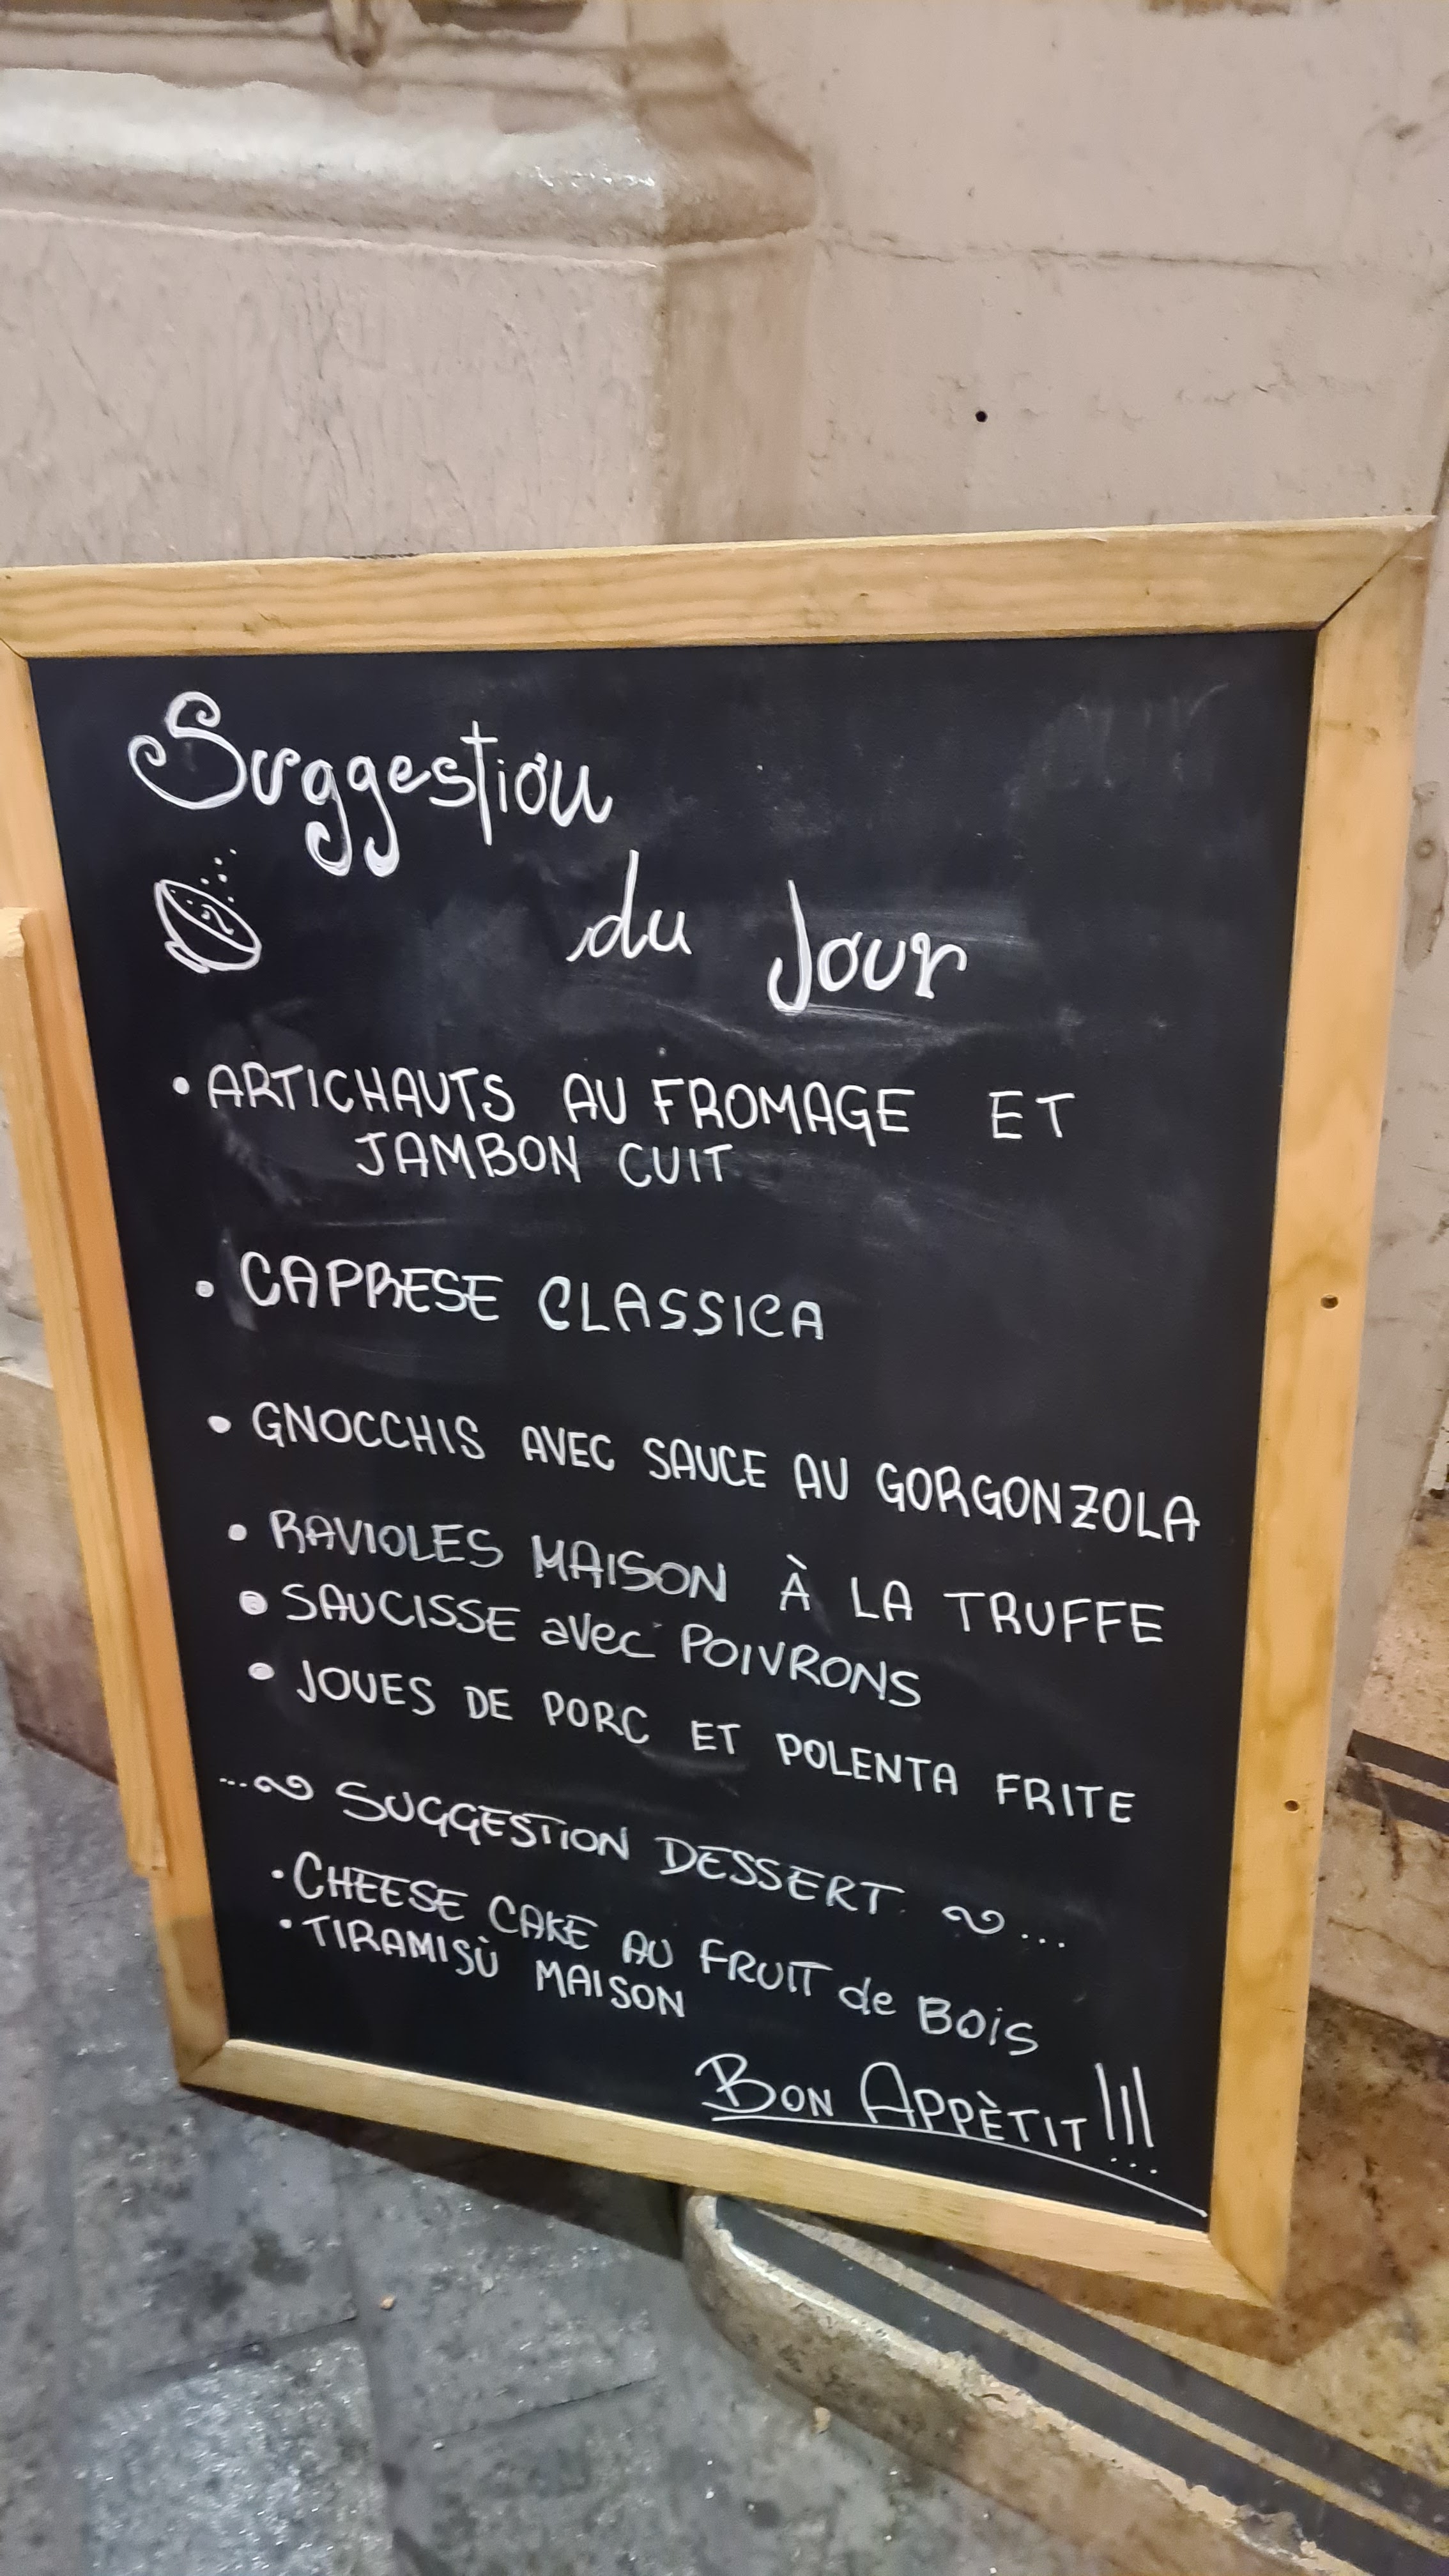 Suggestion
du Jour
• ARTICHAUTS AU FROMAGE ET
JAMBON CUIT
• CAPRESE CLASSICA
• GNOCCHIS AVEC SAUCE AU GORGONZOLA
• RAVIOLES MAISON À LA TRUFFE
• SAUCISSE avec POIVRONS
• JOUES DE PORC ET POLENTA FRITE
...~ SUGGESTION DESSERT ~...
• CHEESE CAKE AU FRUIT de BOIS
• TIRAMISÙ MAISON
BON APPÈTIT!!!